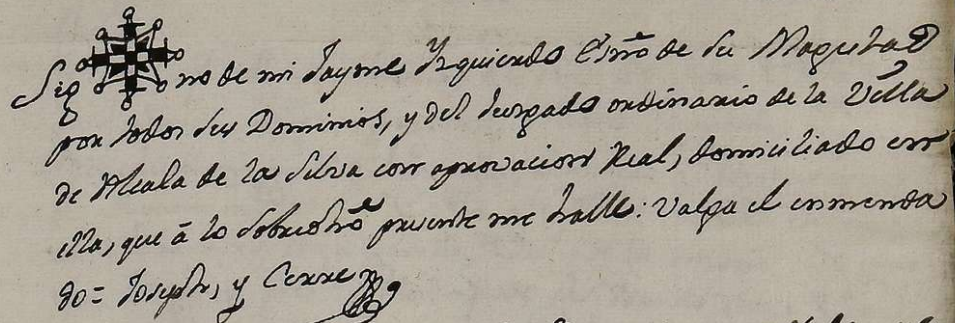 Sig no de mi Jayme Yzquierdo Essno de Su Magestad
por todos sus Dominios, y del Juzgado ordinario de la Villa
de Alcala de la Silva con aprovacion Real, domiciliado en
ella, que â lo sobredho presente me halle: Valga el enmenda
do= Joseph, y Cerrer